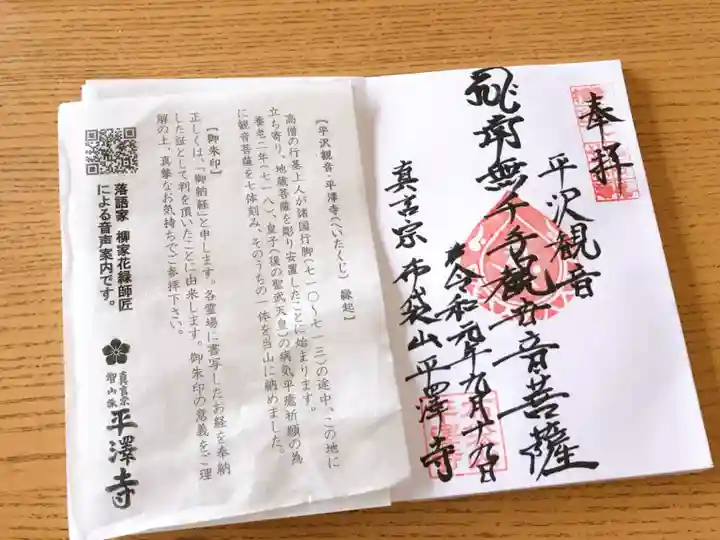 奉拝
平沢観音
南無千手観世音菩薩
令和元年九月十九日
真言宗 布袋山 平澤寺
【平沢観音・平澤寺(へいたくじ) 縁起】
高僧の行基上人が諸国行脚(七一〇~七一三)の途中、この地に
立ち寄り、地蔵菩薩を彫り安置したことに始まります。
養老二年(七一八)、皇子(後の聖武天皇)の病気平癒祈願の為
に観音菩薩を七体刻み、そのうちの一体を当山に納めました。
【御朱印】
正しくは、「御納経」と申します。各霊場に書写したお経を奉納
した証として判を頂いたことに由来します。御朱印の意義をご理
解の上、真摯なお気持ちでご参拝下さい。
落語家 柳家花緑師匠
による音声案内です。
真言宗
智山派
平澤寺